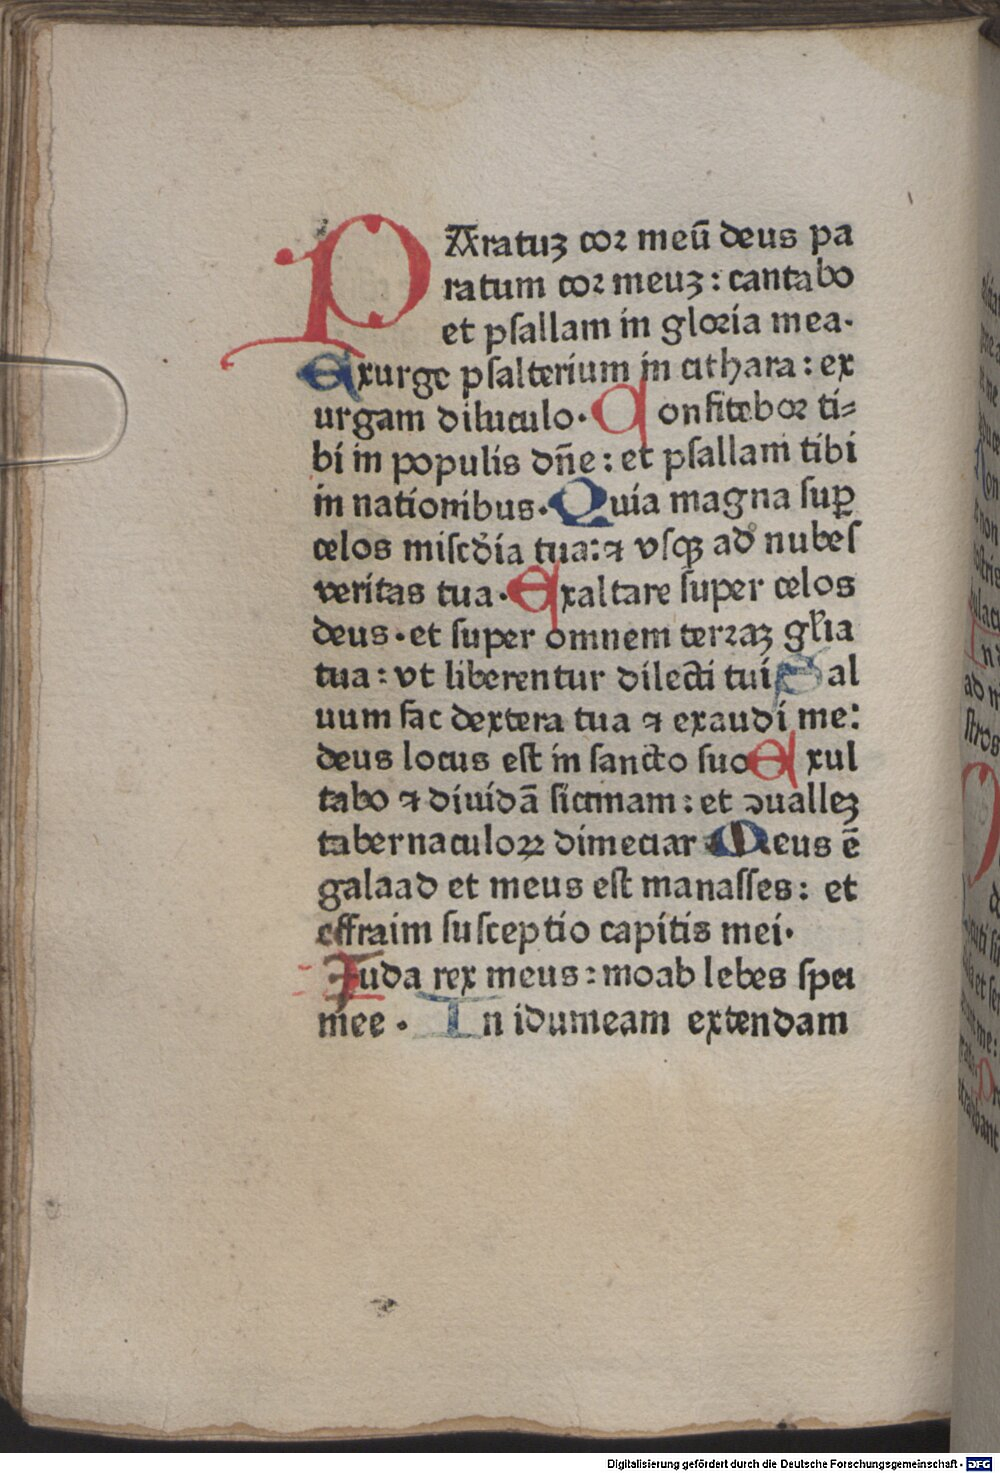 PAratuꝫ coꝛ meū deus pa
ratum coꝛ meuꝫ: cantabo
et pſallam in gloꝛia mea.
Exurge pſalterium in cithara: ex
urgam diluculo. Confiteboꝛ ti⸗
bi in populis dn̄e: et pſallam tibi
in nationibus. Quia magna ſuꝑ
celos miſcd̄ia tua: ⁊ vſqꝫ ad nubeſ
veritas tua. Exaltare ſuper celos
deus. et ſuper omnem terꝛaꝫ gl̄ia
tua: vt liberentur dilecti tui Sal
uum fac dextera tua ⁊ exaudi me:
deus locus eſt in ſancto ſuo Exul
tabo ⁊ diuidā ſicimam: et ↄualleꝫ
tabernaculoꝝ dimeciar Meus ē
galaad et meus eſt manaſſes: et
effraim ſuſceptio capitis mei.
Juda rex meus: moab lebes ſpei
mee. In idumeam extendam
Digitalisierung gefördert durch die Deutsche Forschungsgemeinschaft - DFG